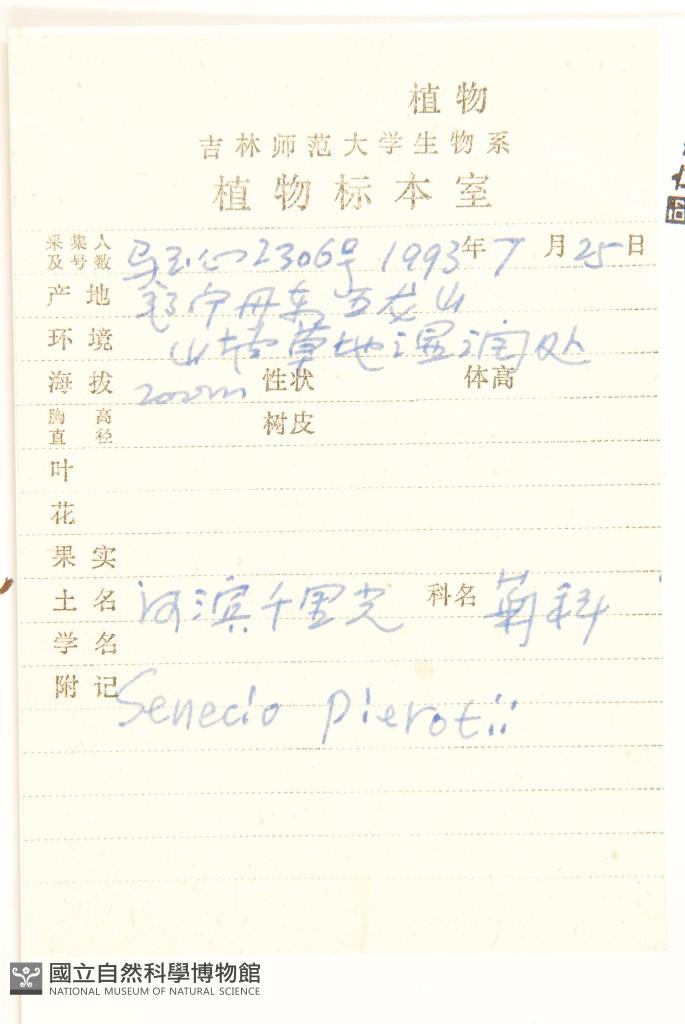 植物
吉林师范大学生物系
植物标本室
采集人及号数 吴玉心 2306号 1993年7月25日
产地 辽宁丹东五龙山
环境 山坡草地湿润处
海拔 200m 性状 体高
胸高直径 树皮
叶
花
果实
土名 河滨千里光 科名 菊科
学名
附记 Senecio Pierotii
國立自然科學博物館
NATIONAL MUSEUM OF NATURAL SCIENCE